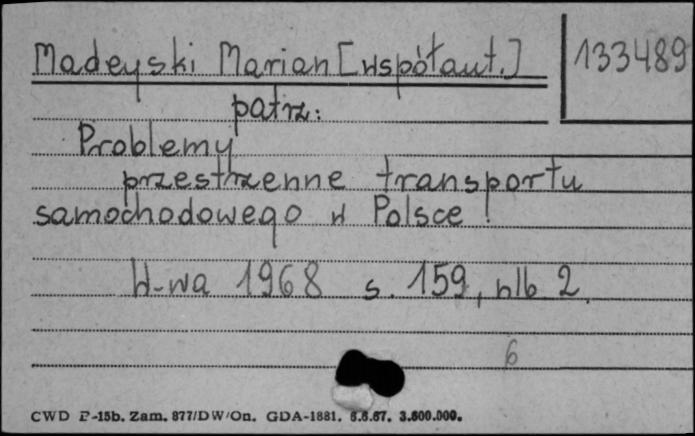 Madeyski Marian [współaut.] 133489
patrz:
Problemy
przestrzenne transportu
samochodowego w Polsce.
W-wa 1968 s. 159, nlb 2.
6
CWD P-15b. Zam. 877/DW/On. GDA-1881. 6.6.67. 3.600.000.